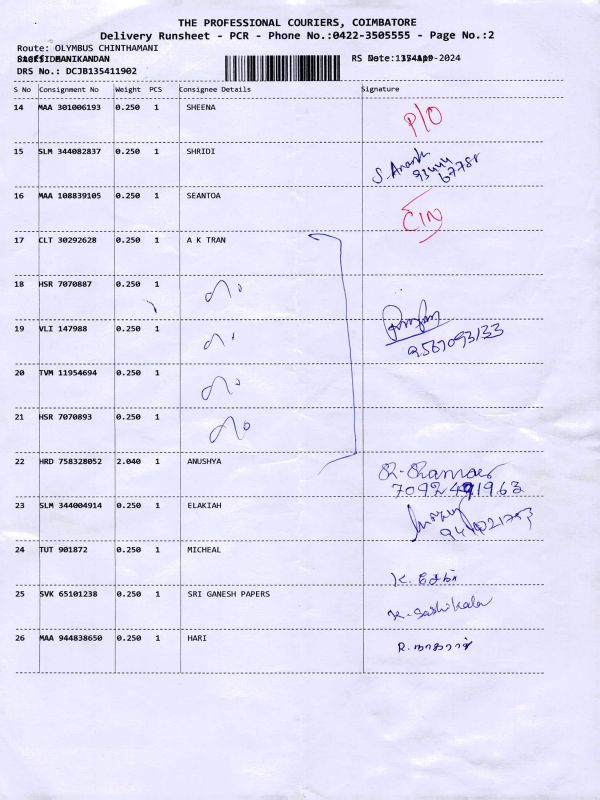 THE PROFESSIONAL COURIERS, COIMBATORE
Delivery Runsheet - PCR - Phone No.:0422-3505555 - Page No.:2
Route: OLYMBUS CHINTHAMANI
MANIKANDAN RS Date: -2024
DRS No.: DCJB135411902
S No Consignment No Weight PCS Consignee Details Signature
14 MAA 301006193 0.250 1 SHEENA P/O
15 SLM 344082837 0.250 1 SHRIDI S. Anand
16 MAA 108839105 0.250 1 SEANTOA
17 CLT 30292628 0.250 1 A K TRAN
18 HSR 7070887 0.250 1
19 VLI 147988 0.250 1
20 TVM 11954694 0.250 1
21 HSR 7070893 0.250 1
22 HRD 758328052 2.040 1 ANUSHYA
23 SLM 344004914 0.250 1 ELAKIAH
24 TUT 901872 0.250 1 MICHEAL
25 SVK 65101238 0.250 1 SRI GANESH PAPERS K. Sashikala
26 MAA 944838650 0.250 1 HARI